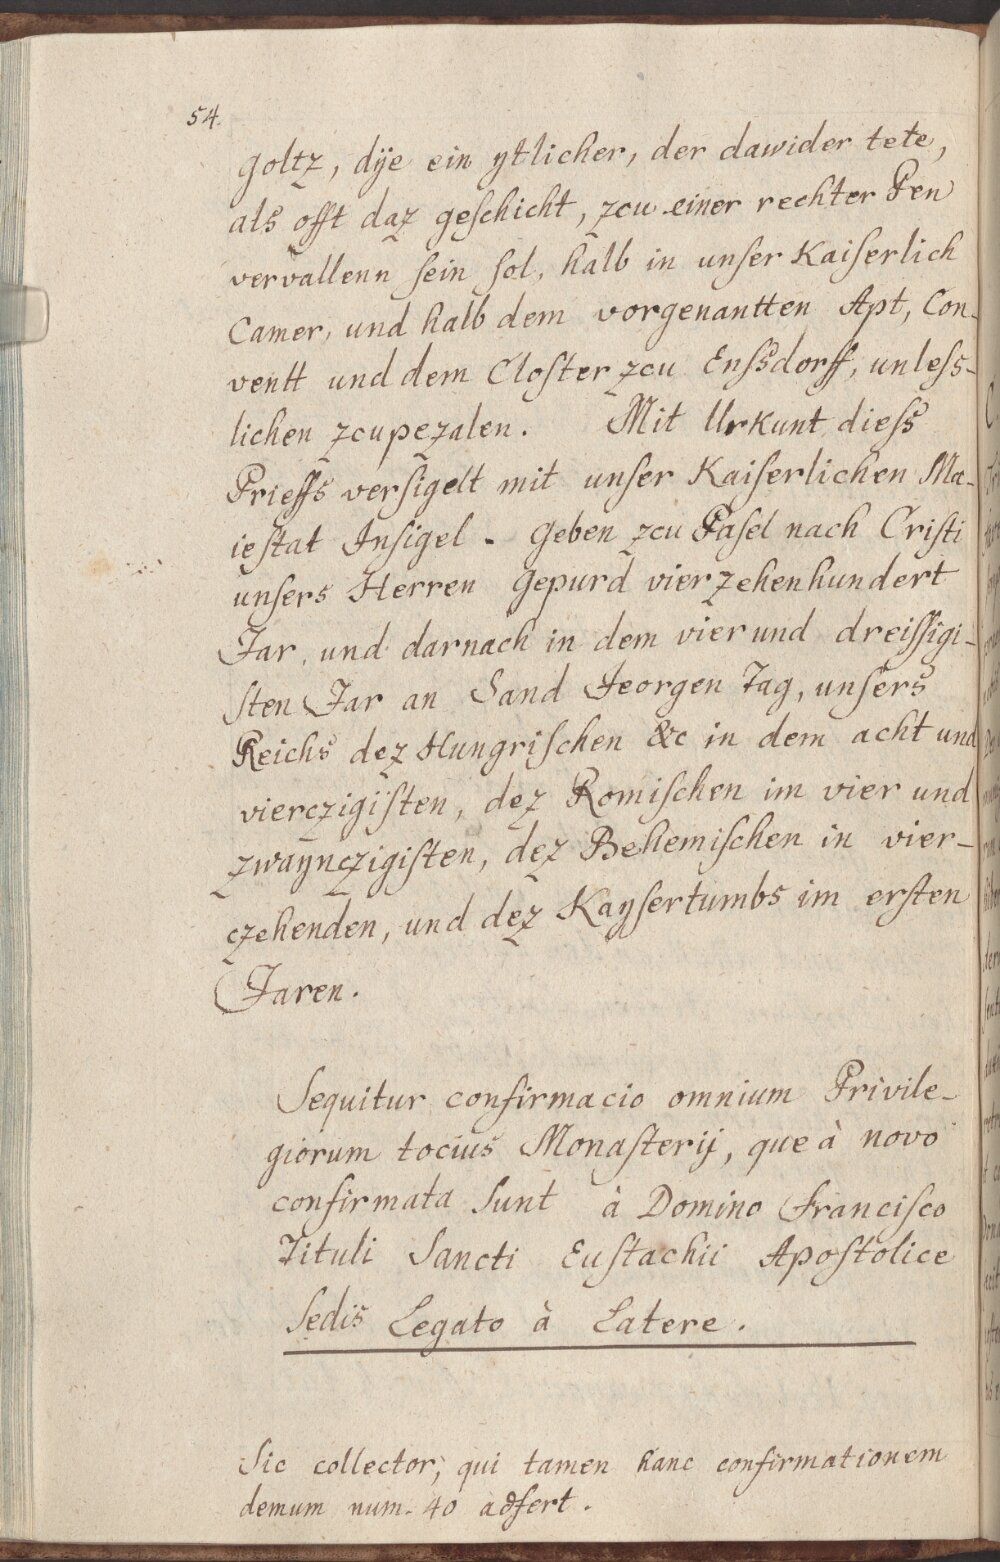 54.
Goltz, dÿe ein ytlicher, der dawider tete,
als offt daz geschicht, zcu einer rechter Pen
vervallenn sein sol, halb in unser Kaiserlich
Camer, und halb dem vorgenantten Apt, Con-
ventt und dem Closter zcu Enssdorff, unless-
lichen zcupezalen. Mit Urkunt diess
Prieffs versigelt mit unser Kaiserlichen Ma-
iestat Insigel - Geben zcu Pasel nach Cristi
unsers Herren Gepurd vierzehenhundert
Jar, und darnach in dem vierund dreissigi-
sten Jar an Sand Jeorgen Tag, unsers
Reichs dez Hungrischen &c in dem acht und
vierczigisten, dez Romischen im vier und
zwaynczigisten, dez Behemischen in vier-
czehenden, und dez Kaysertumbs im ersten
Jaren.
Sequitur confirmacio omnium Privile-
giorum tocius Monasterij, que à novo
confirmata sunt à Domino Francisco
Tituli Sancti Eustachii Apostolice
Sedis Legato à Latere.
Sic collector, qui tamen hanc confirmationem
demum num. 40 adfert.